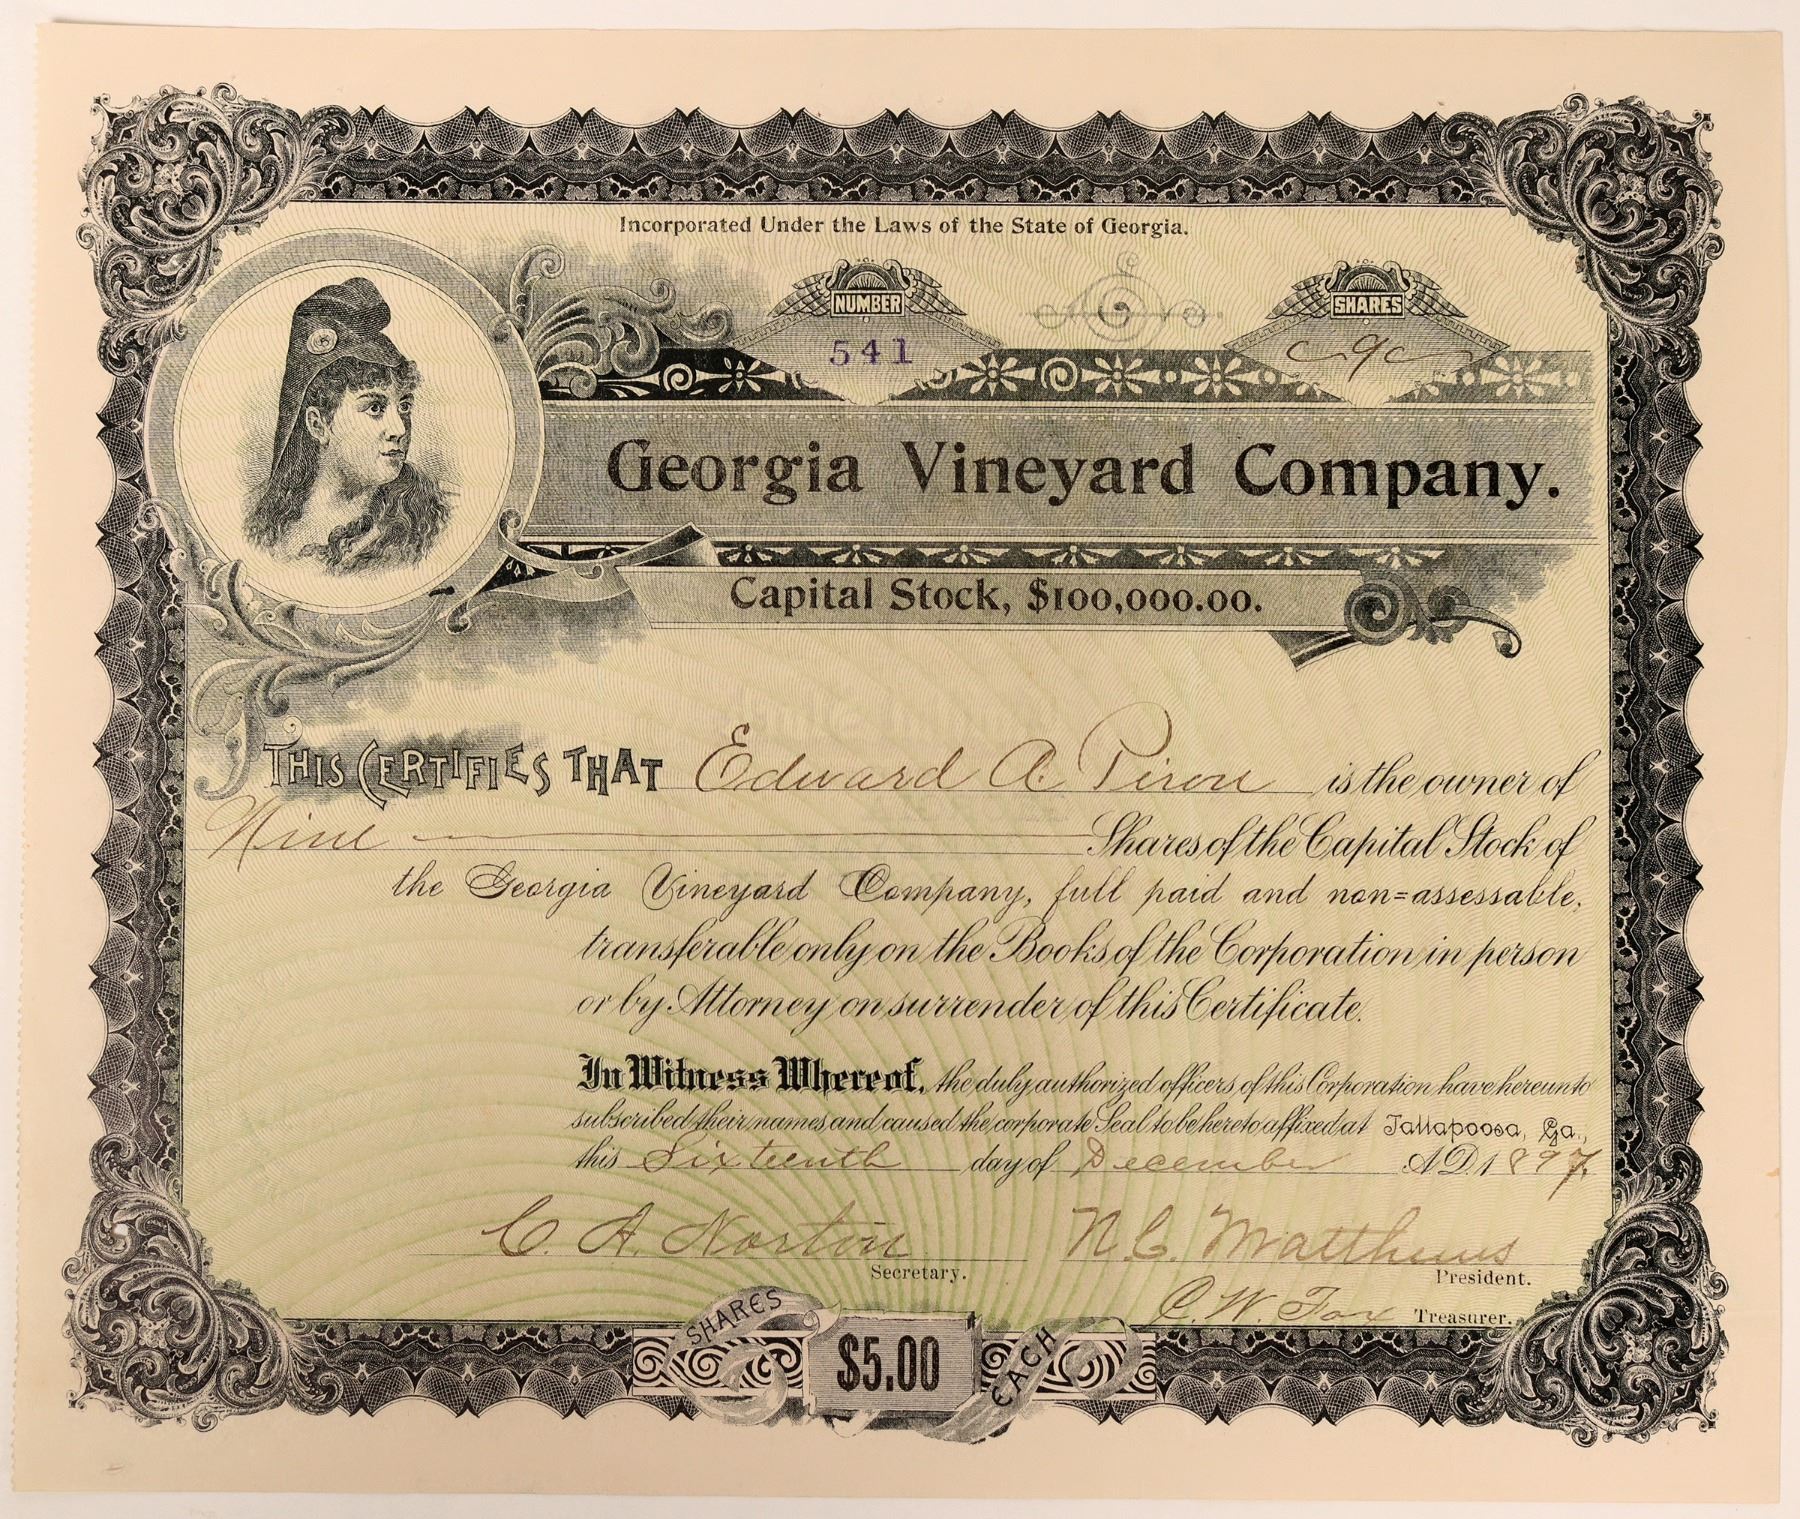 Incorporated Under the Laws of the State of Georgia.
NUMBER
541
SHARES
9
Georgia Vineyard Company.
Capital Stock, $100,000.00.
THIS CERTIFIES THAT Edward A. Piron is the owner of
Nine Shares of the Capital Stock of
the Georgia Vineyard Company, full paid and non=assessable,
transferable only on the Books of the Corporation in person
or by Attorney on surrender of this Certificate.
In Witness Whereof, the duly authorized officers of this Corporation have hereunto
subscribed their names and caused the corporate Seal to be hereto affixed at Tallapoosa, Ga.,
this Sixteenth day of December A.D. 1897.
C. A. Norton
Secretary.
N. C. Matthews
President.
C. W. Fox Treasurer.
SHARES
$5.00
EACH